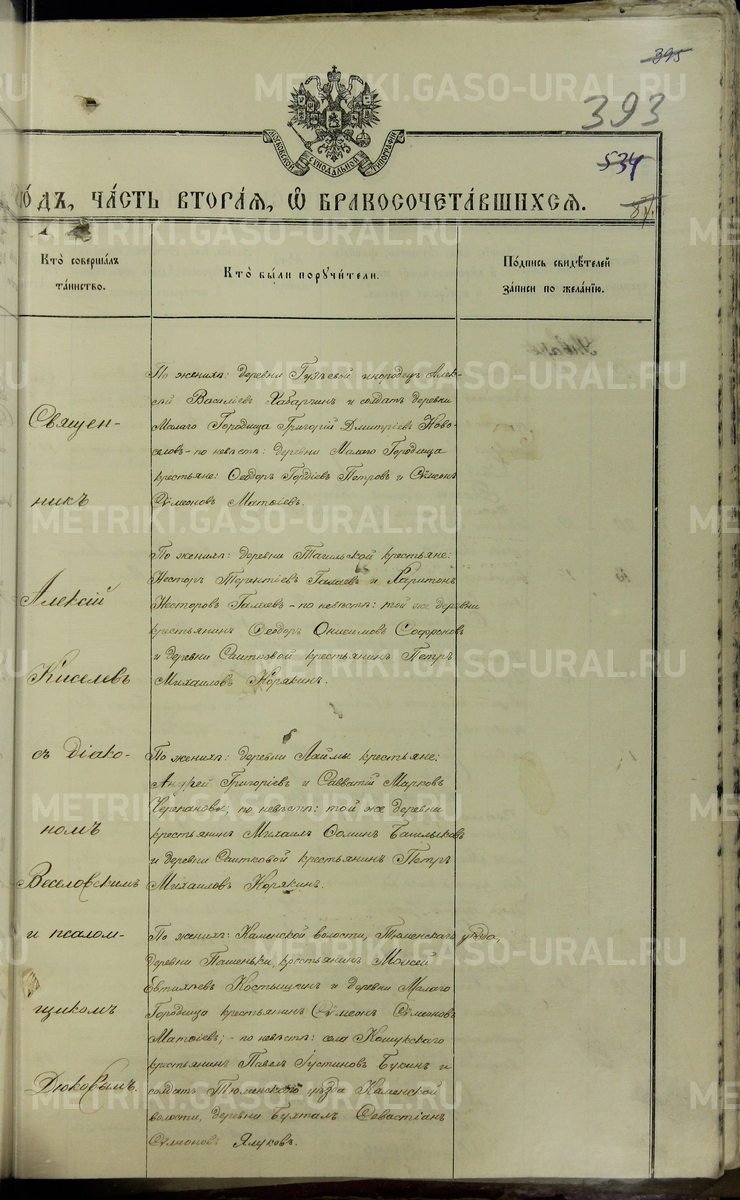 395
393
534
87.
МОСКОВСКОЙ СѴНОДАЛЬНОЙ ТИПОГРАФІИ
о́дъ, ча́сть втора́ѧ, ѡ҆ бракосочета́вшихсѧ.
Кто̀ соверша́лъ
та́инство.
Кто̀ бы́ли порꙋчи́тели.
По́дпись свидѣ́телей
за́писи по жела́нїю.
Священ-
никъ
Алексій
Киселевъ
съ діако-
номъ
Веселовскимъ
и псалом-
щикомъ
Дюковымъ.
По женихѣ: деревни Гузѣевой инородецъ Алек-
сѣй Васильевъ Хабарчинъ и солдатъ деревни
Малаго Городища Григорій Дмитріевъ Ново-
селовъ - по невѣстѣ: деревни Малаго Городища
крестьяне: Ѳеодоръ Гордіевъ Петровъ и Сѵмеонъ
Сѵмеоновъ Матвіевъ.
По женихѣ: деревни Тагильской крестьяне:
Несторъ Терентіевъ Галаевъ и Харитонъ
Несторовъ Галаевъ - по невѣстѣ: той же деревни
крестьянинъ Ѳеодоръ Онисимовъ Софроновъ
и деревни Саитковой крестьянинъ Петръ
Михаиловъ Корякинъ.
По женихѣ: деревни Лаймы крестьяне:
Андрей Григоріевъ и Савватій Марковъ
Черепановы; по невѣстѣ: той же деревни
крестьянинъ Михаилъ Ѳоминъ
и деревни Саитковой крестьянинъ Петръ
Михаиловъ Корякинъ.
По женихѣ: Каменской волости, Тюменскаго уѣзда,
деревни Пашеньки, крестьянинъ Моисей
Евтихіевъ Костышкинъ и деревни Малаго
Городища крестьянинъ Сѵмеонъ Сѵмеоновъ
Матвіевъ; - по невѣстѣ: села Кошукскаго
крестьянинъ Павелъ Іустиновъ Букинъ и
солдатъ Тюменскаго уѣзда Каменской
волости, деревни Бухталъ Севастіанъ
Сѵмеоновъ Ялуковъ.
METRIKI.GASO-URAL.RU